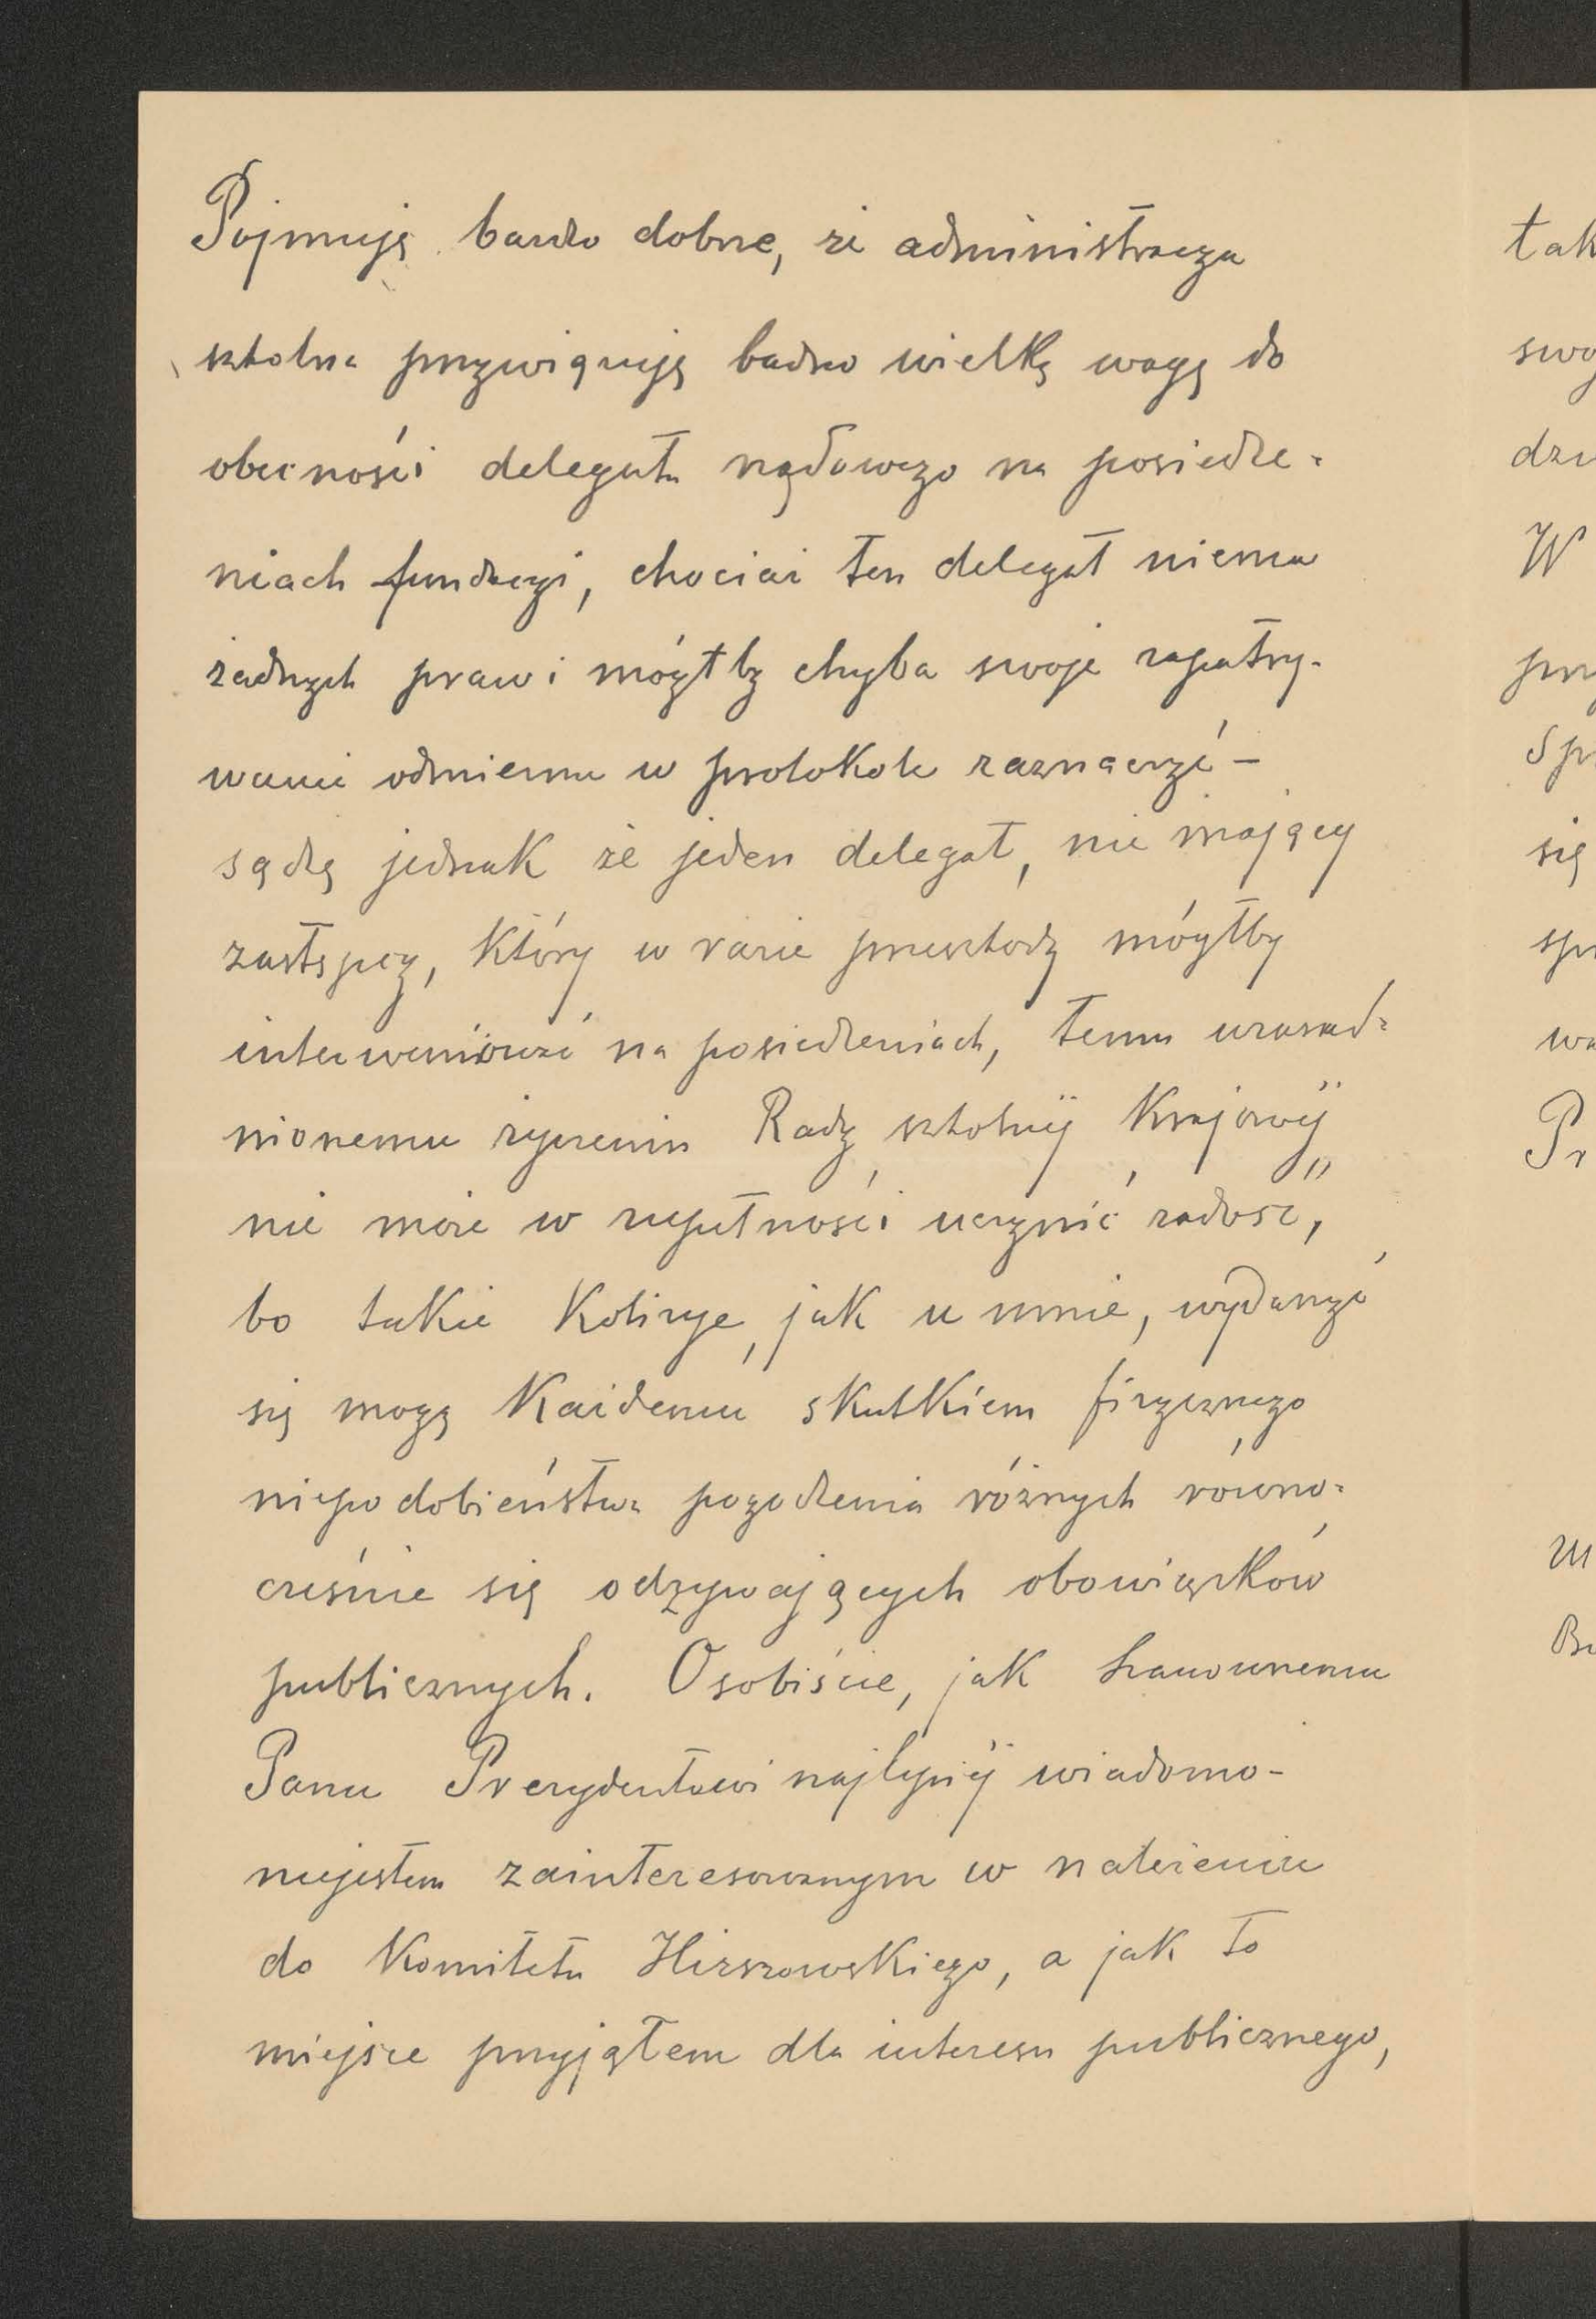 Pojmuję bardzo dobrze, że administracya
szkolna przywiązuję badzo wielkę wagę do
obecności delegata rządowego na posiedze=
niach fundacyi, chociaż ten delegat niema
żadnych praw i mógłby chyba swoje zapatry-
wanie odmienne w protokole zaznaczyć –
sądzę jednak że jeden delegat, nie mający
zastępcy, który w razie przeszkody mógłby
interweniować na posiedzeniach, temu uzasad=
nionemu życzeniu Rady szkolnej Krajowej
nie może w zupełności uczynić zadość,
bo takie Kolizye, jak u mnie, wydarzyć
się mogą Każdemu skutkiem fizycznego
niepodobieństwa pogodzenia różnych równo=
cześnie się odzywających obowiązków
publicznych. Osobiście, jak Szanownemu
Panu Prezydentowi najlepiej wiadomo –
niejestem zainteresowanym w należeniu
do Komitetu Hirszowskiego, a jak to
miejsce przyjąłem dla interesu publicznego,
tak
swoj
W
się
Pr